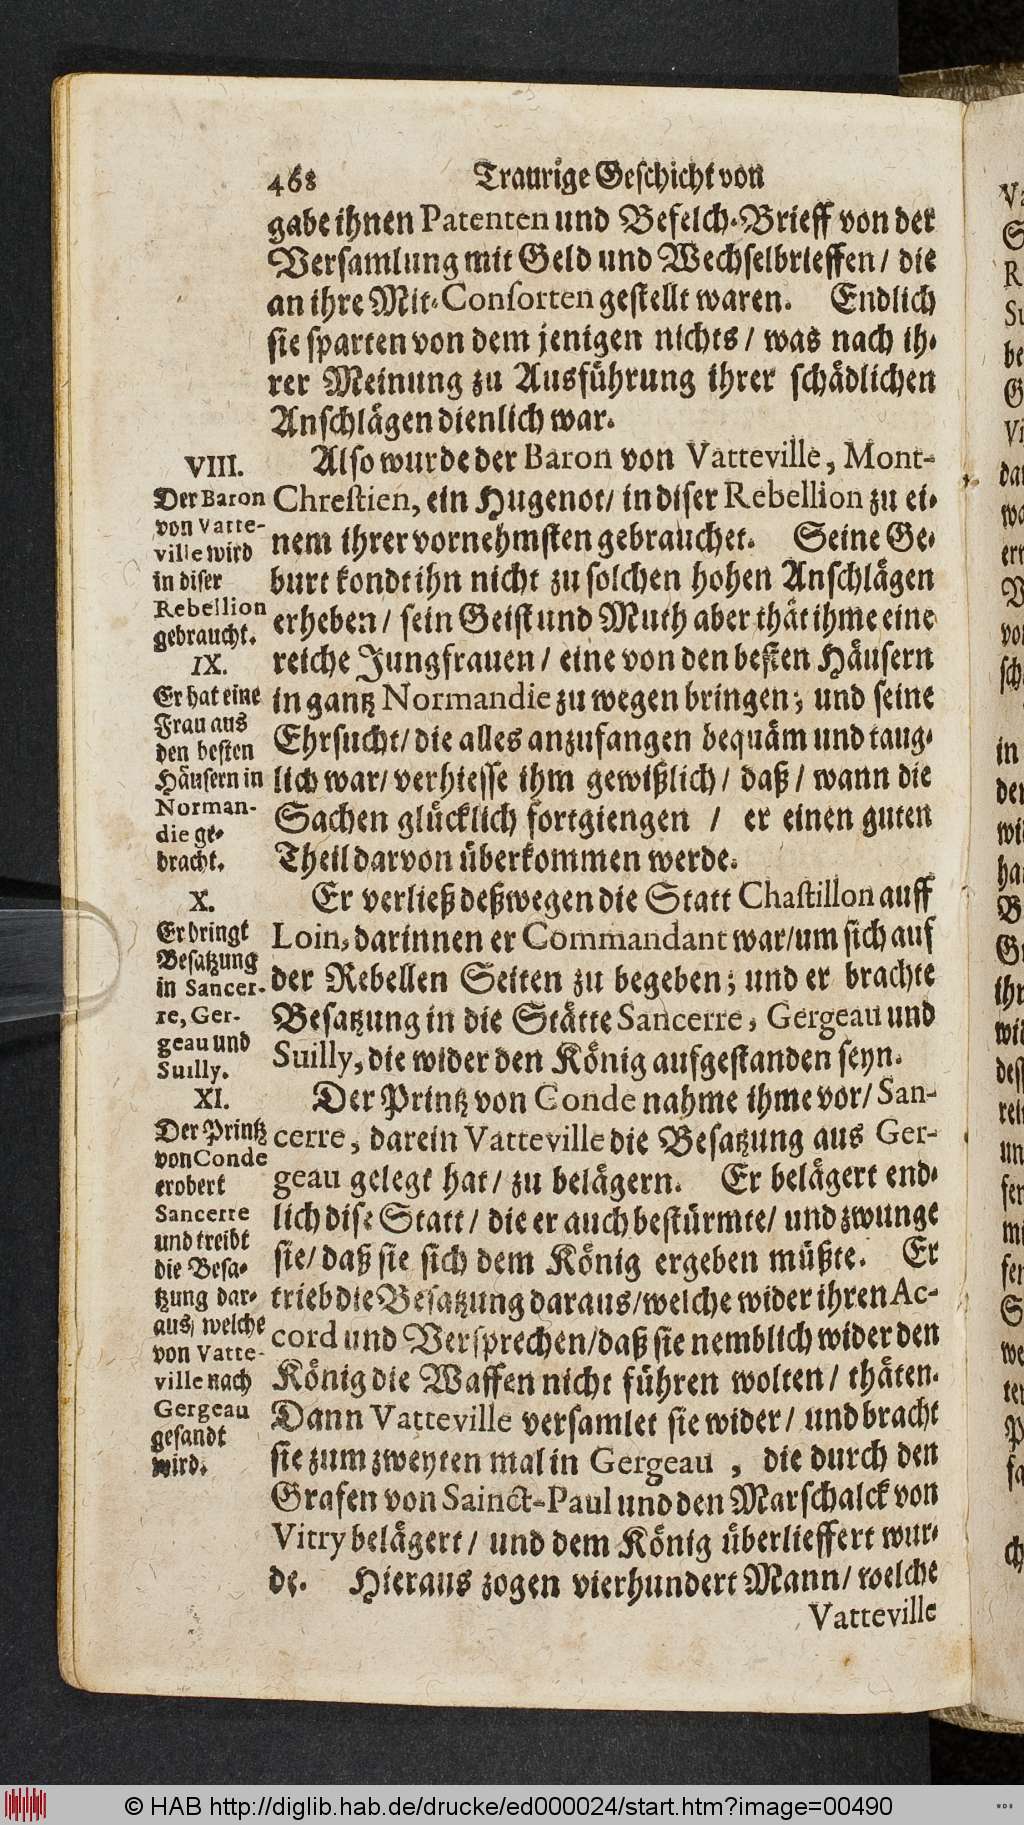 468 Traurige Geschicht von
gabe ihnen Patenten und Befelch-Brieff von der
Versamlung mit Geld und Wechselbrieffen / die
an ihre Mit-Consorten gestellt waren. Endlich
sie sparten von dem jenigen nichts / was nach ih-
rer Meinung zu Ausführung ihrer schädlichen
Anschlägen dienlich war.
VIII.
Der Baron
von Vatte-
ville wird
in diser
Rebellion
gebraucht.
Also wurde der Baron von Vatteville, Mont-
Chrestien, ein Hugenot / in diser Rebellion zu ei-
nem ihrer vornehmsten gebrauchet. Seine Ge-
burt kondt ihn nicht zu solchen hohen Anschlägen
erheben / sein Geist und Muth aber thät ihme eine
reiche Jungfrauen / eine von den besten Häusern
in gantz Normandie zu wegen bringen; und seine
Ehrsucht / die alles anzufangen bequäm und taug-
lich war / verhiesse ihm gewißlich / daß / wann die
Sachen glücklich fortgiengen / er einen guten
Theil darvon überkommen werde.
IX.
Er hat eine
Frau aus
den besten
Häusern in
Norman-
die ge-
bracht.
X.
Er bringt
Besatzung
in Sancer-
re, Ger-
geau und
Suilly.
Er verließ deßwegen die Statt Chastillon auff
Loin, darinnen er Commandant war / um sich auf
der Rebellen Seiten zu begeben; und er brachte
Besatzung in die Stätte Sancerre, Gergeau und
Suilly, die wider den König aufgestanden seyn.
XI.
Der Printz
von Conde
erobert
Sancerre
und treibt
die Besa-
tzung dar-
aus / welche
von Vatte-
ville nach
Gergeau
gesandt
wird.
Der Printz von Conde nahme ihme vor / San-
cerre, darein Vatteville die Besatzung aus Ger-
geau gelegt hat / zu belägern. Er belägert end-
lich dise Statt / die er auch bestürmte / und zwunge
sie / daß sie sich dem König ergeben müßte. Er
trieb die Besatzung daraus / welche wider ihren Ac-
cord und Versprechen / daß sie nemblich wider den
König die Waffen nicht führen wolten / thäten.
Dann Vatteville versamlet sie wider / und bracht
sie zum zweyten mal in Gergeau, die durch den
Grafen von Sainct-Paul und den Marschalck von
Vitry belägert / und dem König überlieffert wur-
de. Hieraus zogen vierhundert Mann / welche
Vatteville
© HAB http://diglib.hab.de/drucke/ed000024/start.htm?image=00490